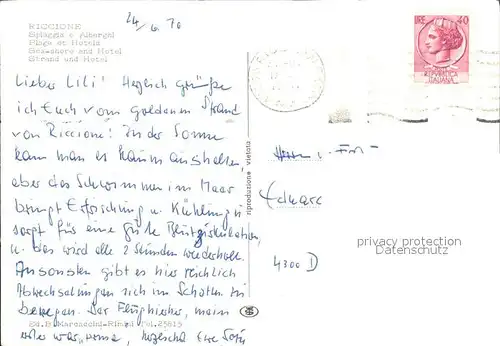 24/6.70
RICCIONE
Spiaggia e Alberghi
Plage et Hotels
Sea-shore and Hotel
Strand und Hotel
LIRE 40
Lieber Lili! Herzlich grüße
ich Euch vom goldenen Strand
von Riccione! In der Sonne
kann man es kaum aushalten
aber das Schwimmen im Meer
bringt Erfrischung u. Kühlung u.
sorgt für eine gute Blutzirkulation,
u. das wird alle 2 Stunden wiederholt.
Ansonsten gibt es hier reichlich
Abwechselungen sich im Schatten zu
bewegen. Der Flug hierher, mein
erster war prima, herzlichst Eure
Ed. B. Marconi-Rimini Tel. 25615
riproduzione vietata
Herrn u.
Eduard
4300 D
privacy protection
Datenschutz